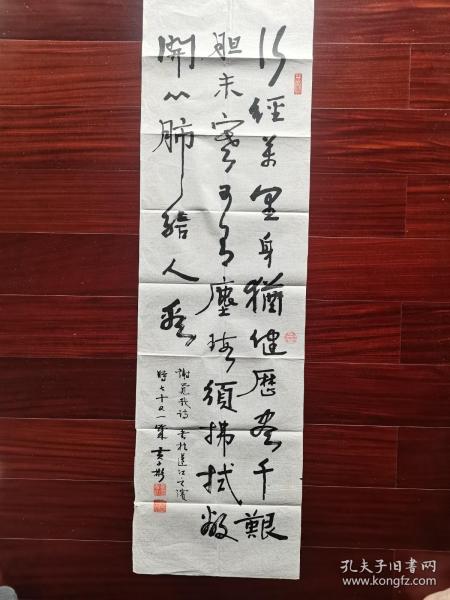 行經萬里身猶健歷尽千艱
胆未寒可有塵瑕須拂拭敞
開心肺給人看
謝覺哉詩 書於江之濱
時七十又一歲
孔夫子旧书网
www.kongfz.com